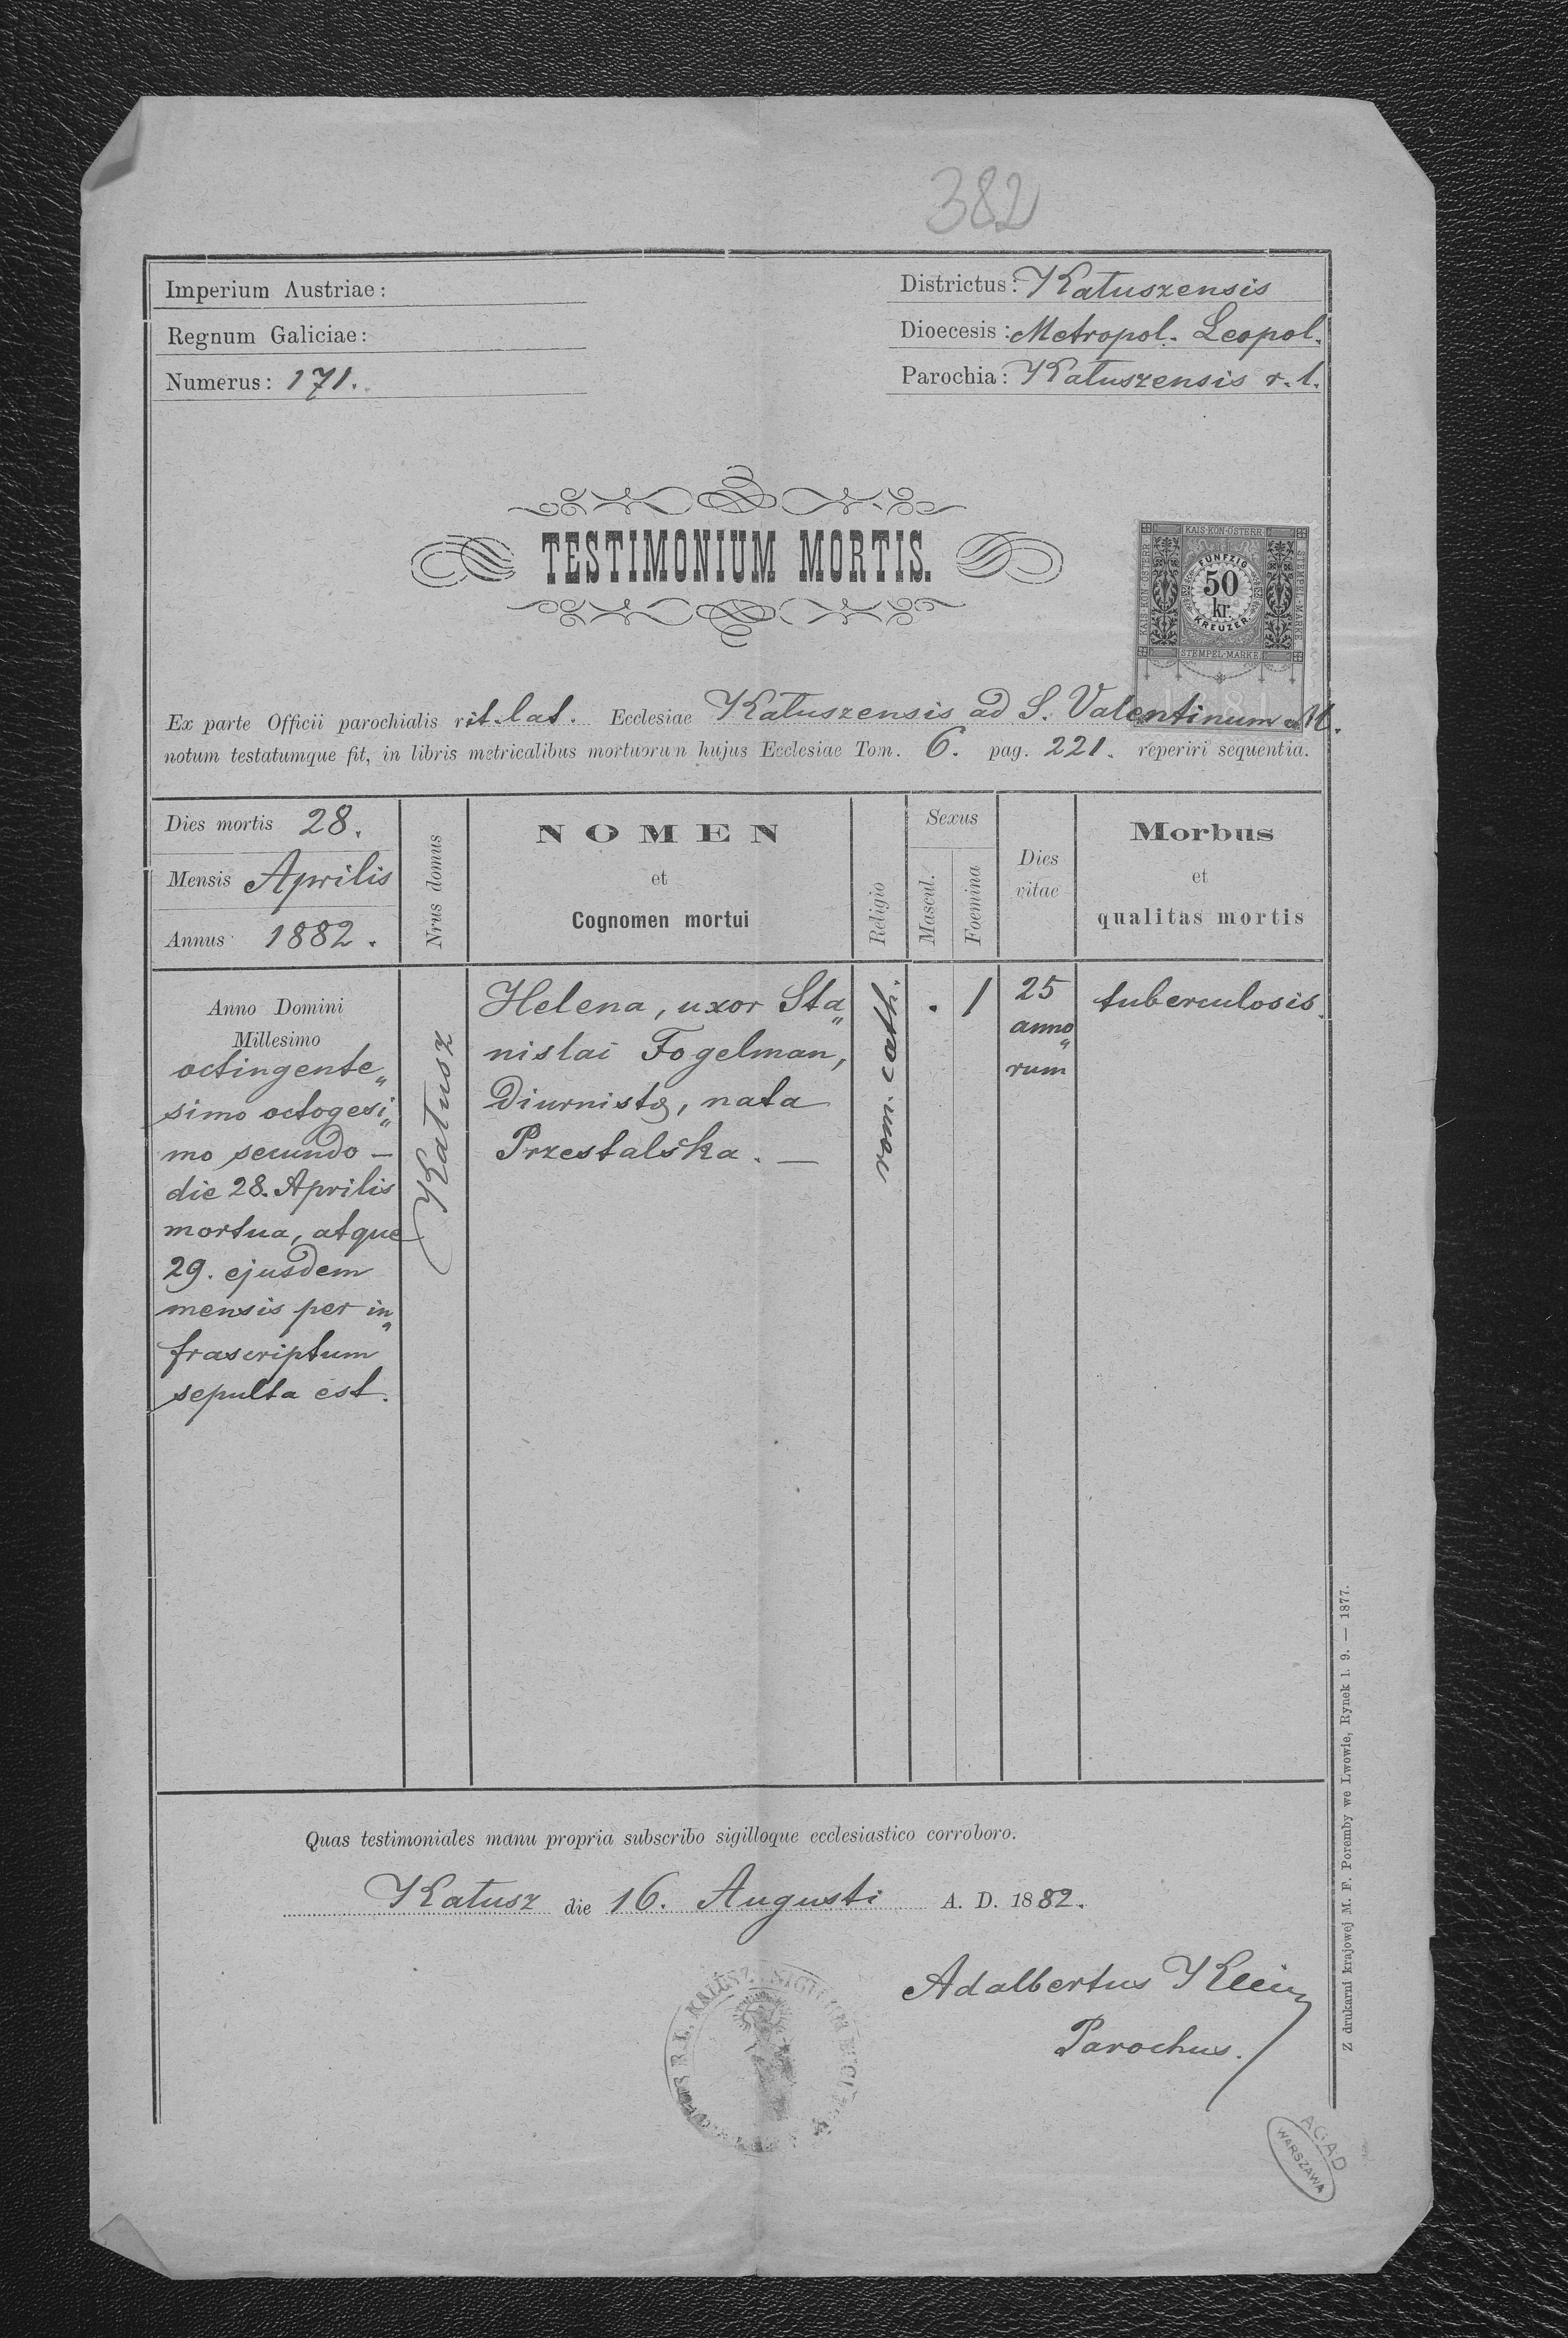 382
Imperium Austriae:
Regnum Galiciae:
Numerus: 171.
Districtus: Kałuszensis
Dioecesis: Metropol. Leopol.
Parochia: Kałuszensis r. l.
TESTIMONIUM MORTIS.
KAIS·KÖN·ÖSTERR
KAIS·KÖN·ÖSTERR
STEMPEL·MARKE
FÜNFZIG
50
kr.
KREUZER
STEMPEL-MARKE
1881
Ex parte Officii parochialis rit. lat. Ecclesiae Kałuszensis ad S. Valentinum M.
notum testatumque fit, in libris metricalibus mortuorun hujus Ecclesiae Tom. 6. pag. 221. reperiri sequentia.
Dies mortis 28.
Mensis Aprilis
Annus 1882.
Nrus domus
NOMEN
et
Cognomen mortui
Religio
Sexus
Mascul.
Foemina
Dies
vitae
Morbus
et
qualitas mortis
Anno Domini
Millesimo
octingente„
simo octogesi„
mo secundo —
die 28. Aprilis
mortua, atque
29. ejusdem
mensis per in„
frascriptum
sepulta est.
Kałusz
Helena, uxor Sta„
nislai Fogelman,
Diurnistę, nata
Przestalska. —
rom. cath.
. 1
25
anno„
rum
tuberculosis.
Quas testimoniales manu propria subscribo sigilloque ecclesiastico corroboro.
Kałusz die 16. Augusti A. D. 1882.
Adalbertus
Parochus.
R.L. KAŁUSZ. SIGILLUM
Z drukarni krajowej M. F. Poremby we Lwowie, Rynek l. 9. — 1877.
AGAD
WARSZAWA